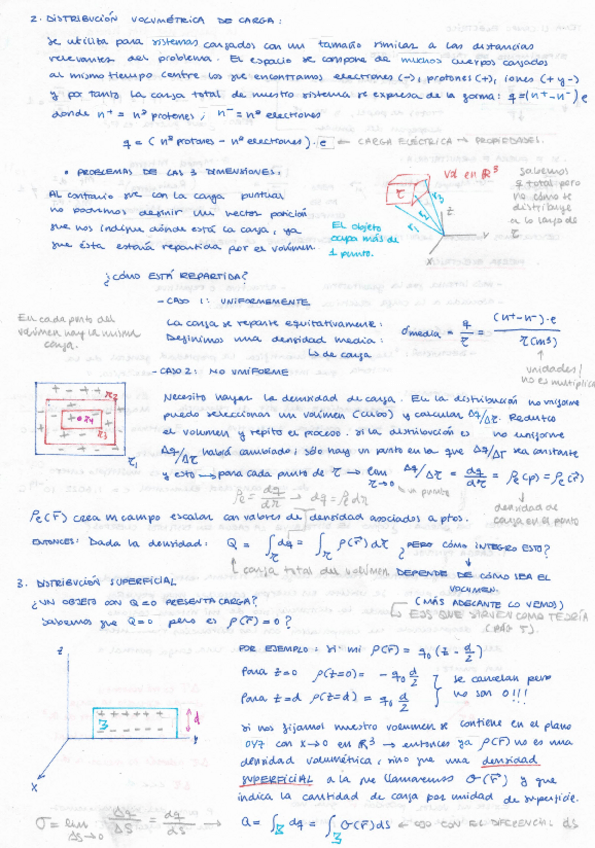 2. DISTRIBUCIÓN VOLUMÉTRICA DE CARGA:
Se utiliza para sistemas cargados con un tamaño similar a las distancias
relevantes del problema. El espacio se compone de muchos cuerpos cargados
al mismo tiempo (entre los que encontramos electrones (-), protones (+), iones (+ y -)
y por tanto la carga total de nuestro sistema se expresa de la forma: q = (n⁺ - n⁻) e
donde n⁺ = nº protones ; n⁻ = nº electrones
q = (nº protones - nº electrones) · e ← CARGA ELÉCTRICA → PROPIEDADES.
• PROBLEMAS DE LAS 3 DIMENSIONES:
Al contrario que con la carga puntual
no podríamos definir un vector posición
que nos indique dónde está la carga, ya
que ésta estaría repartida por el volumen.
El objeto
ocupa más de
1 punto.
Vd en ℝ³
τ
r₁
r₂
r₃
z
y
x
Sabemos
q total pero
no cómo se
distribuye
a lo largo de
τ
¿CÓMO ESTÁ REPARTIDA?
- CASO 1: UNIFORMEMENTE
En cada punto del
volumen hay la misma
carga.
La carga se reparte equitativamente:
Definimos una densidad media:
↳ de carga
σmedia = q/τ = (n⁺ - n⁻) · e / τ (m³)
unidades!
no es multiplica
- CASO 2: NO UNIFORME
Necesito hallar la densidad de carga. En la distribución no uniforme
puedo seleccionar un volumen (cubo) y calcular Δq/Δτ. Reduzco
el volumen y repito el proceso. Si la distribución es no uniforme
Δq/Δτ habrá cambiado; sólo hay un punto en la que Δq/Δτ sea constante
y esto → para cada punto de τ → lim τ→0 Δq/Δτ = dq/dτ = ρe(p) = ρe(r⃗)
τ₁
τ₂
τ₃
τ₄
ρe = dq/dτ → dq = ρe dτ
un punto
densidad de
carga en el punto
ρe(r⃗) crea un campo escalar con valores de densidad asociados a ptos.
ENTONCES: Dada la densidad: Q = ∫τ dq = ∫τ ρ(r⃗) dτ ¿PERO CÓMO INTEGRO ESTO?
carga total del volumen
DEPENDE DE CÓMO SEA EL
VOLUMEN.
(MÁS ADELANTE LO VEMOS)
EJS QUE SIRVEN COMO TEORÍA
3. DISTRIBUCIÓN SUPERFICIAL
¿UN OBJETO CON Q=0 PRESENTA CARGA?
Sabemos que Q=0 pero es ρ(r⃗) = 0?
z
+ + + + + +
- - - - -
d
y
x
POR EJEMPLO: Si mi ρ(r⃗) = q₀ (z - d/2)
Para z=0 ρ(z=0) = - q₀ d/2
Para z=d ρ(z=d) = q₀ d/2
se cancelan pero
no son 0!!!
Si nos fijamos nuestro volumen se contiene en el plano
OYZ con x→0 en ℝ³ → entonces ya ρ(r⃗) no es una
densidad volumétrica, sino que una densidad
SUPERFICIAL a la que llamaremos σ(r⃗) y que
indica la cantidad de carga por unidad de superficie.
σ = lim ΔS→0 Δq/ΔS = dq/dS → Q = ∫ dq = ∫ σ(r⃗) dS ← OJO CON EL DIFERENCIAL dS